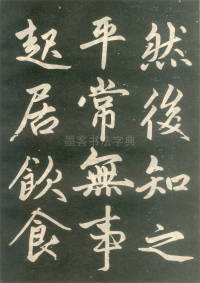 然後知之
平常無事
起居飲食
墨客书法字典